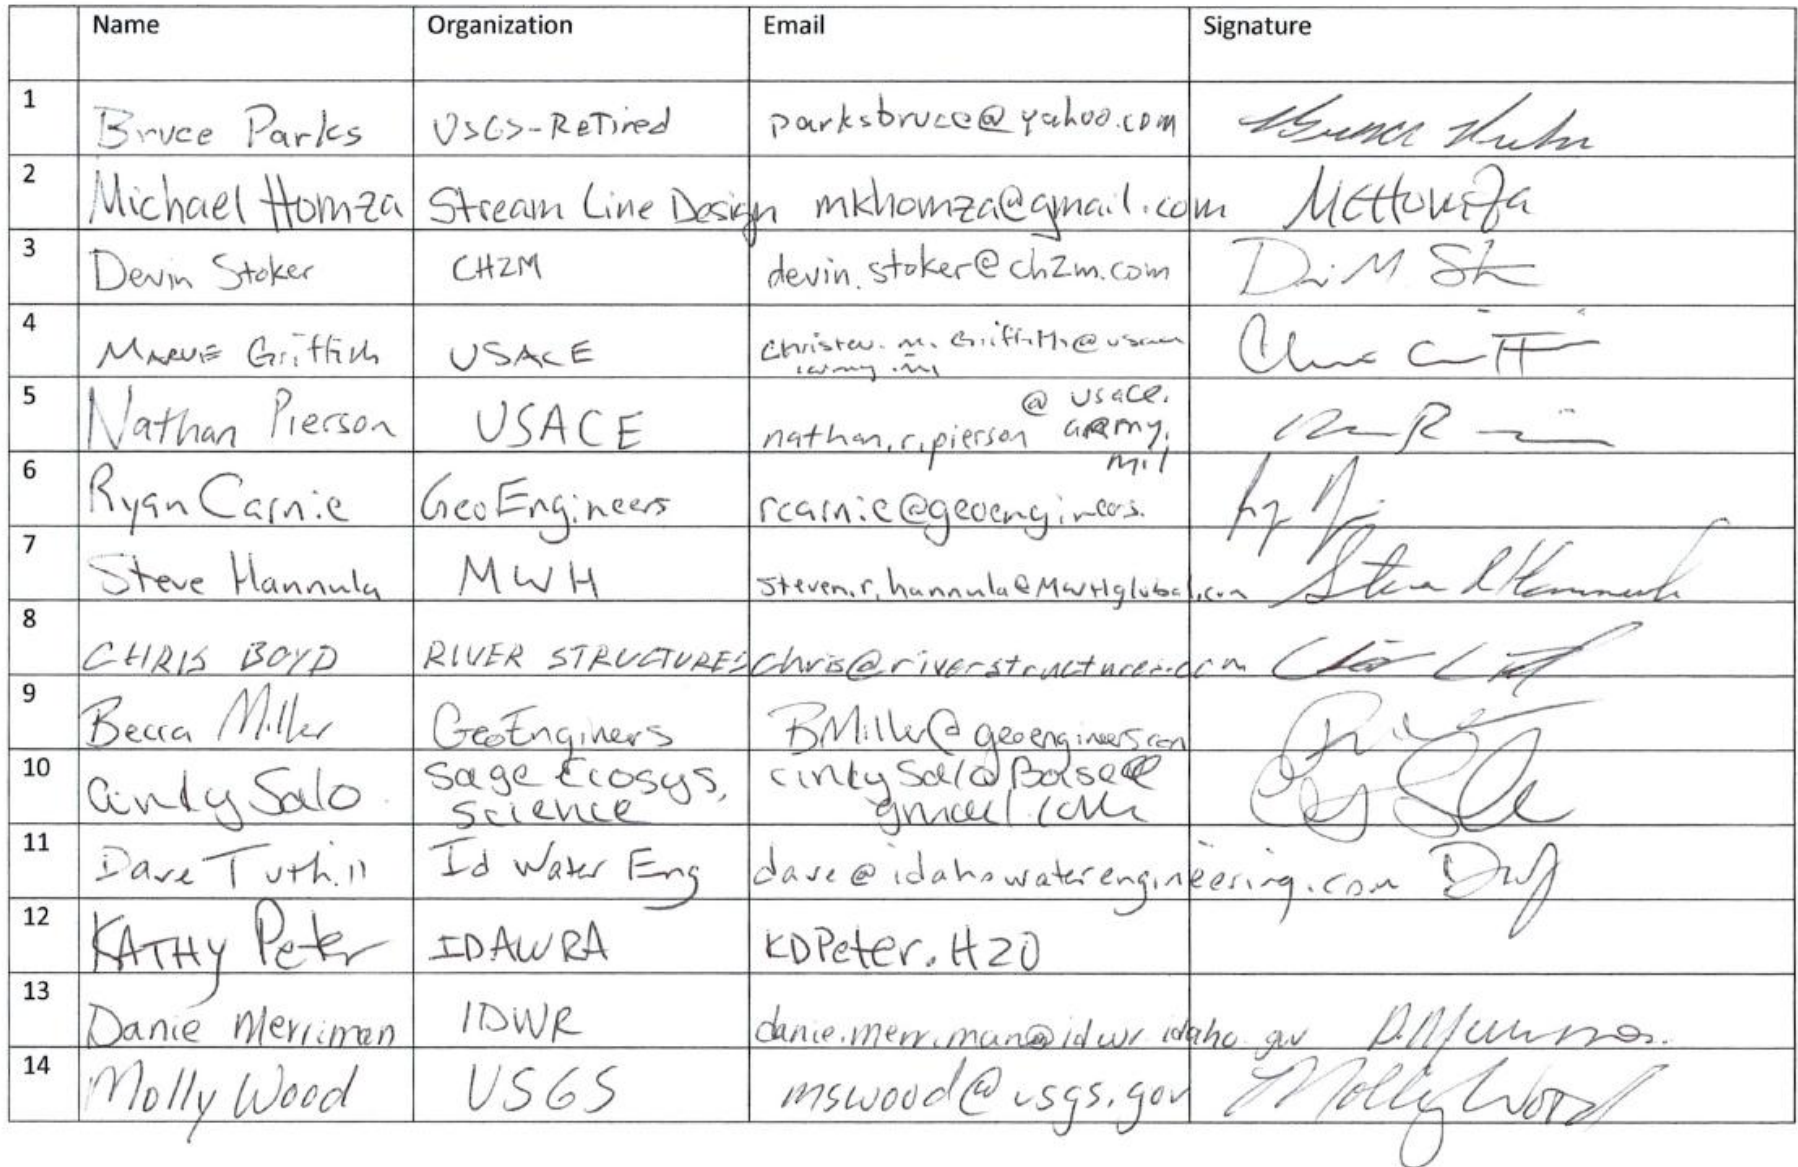 Name Organization Email Signature
1 Bruce Parks USGS-ReTired parksbruce@yahoo.com
2 Michael Homza Stream Line Design mkhomza@gmail.com MKHomza
3 Devin Stoker CH2M devin.stoker@ch2m.com
4 Griffith USACE
5 Nathan Pierson USACE nathan.r.pierson @ usace. army. mil
6 Ryan Carnie GeoEngineers rcarnie@geoengineers.
7 Steve Hannula MWH steven.r.hannula@MWHglobal.com Steven R Hannula
8 CHRIS BOYD RIVER STRUCTURES chris@riverstructures.com
9 Becca Miller GeoEngineers BMiller@geoengineers.com
10 Cindy Salo Sage Ecosys. Science cindySaloBoise@ gmail.com
11 Dave Tuthill Id Water Eng dave@idahowaterengineering.com
12 KATHY Peter IDAWRA KDPeter.H2O
13 Danie Merriman IDWR danie.merriman@idwr.idaho.gov
14 Molly Wood USGS mswood@usgs.gov Molly Wood